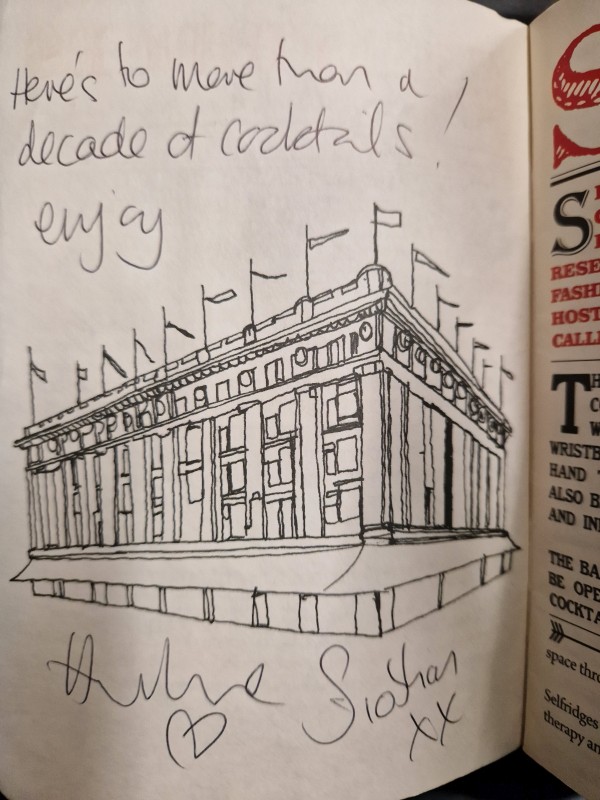 Here's to more than a
decade of cocktails!
enjoy
Siobhan
xx
S
RESE
FASHI
HOST
CALLI
TH
CO
W
WRISTB
HAND
ALSO B
AND IN
THE BA
BE OPE
COCKTA
space thro
Selfridges
therapy an